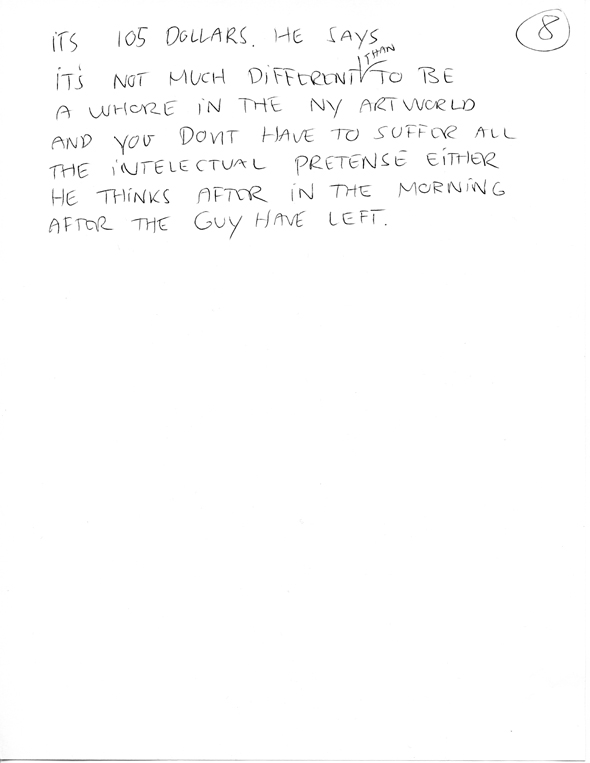 ITS 105 DOLLARS. HE SAYS
8
THAN
IT'S NOT MUCH DIFFERENT TO BE
A WHORE IN THE NY ARTWORLD
AND YOU DONT HAVE TO SUFFER ALL
THE INTELECTUAL PRETENSE EITHER
HE THINKS AFTER IN THE MORNING
AFTER THE GUY HAVE LEFT.